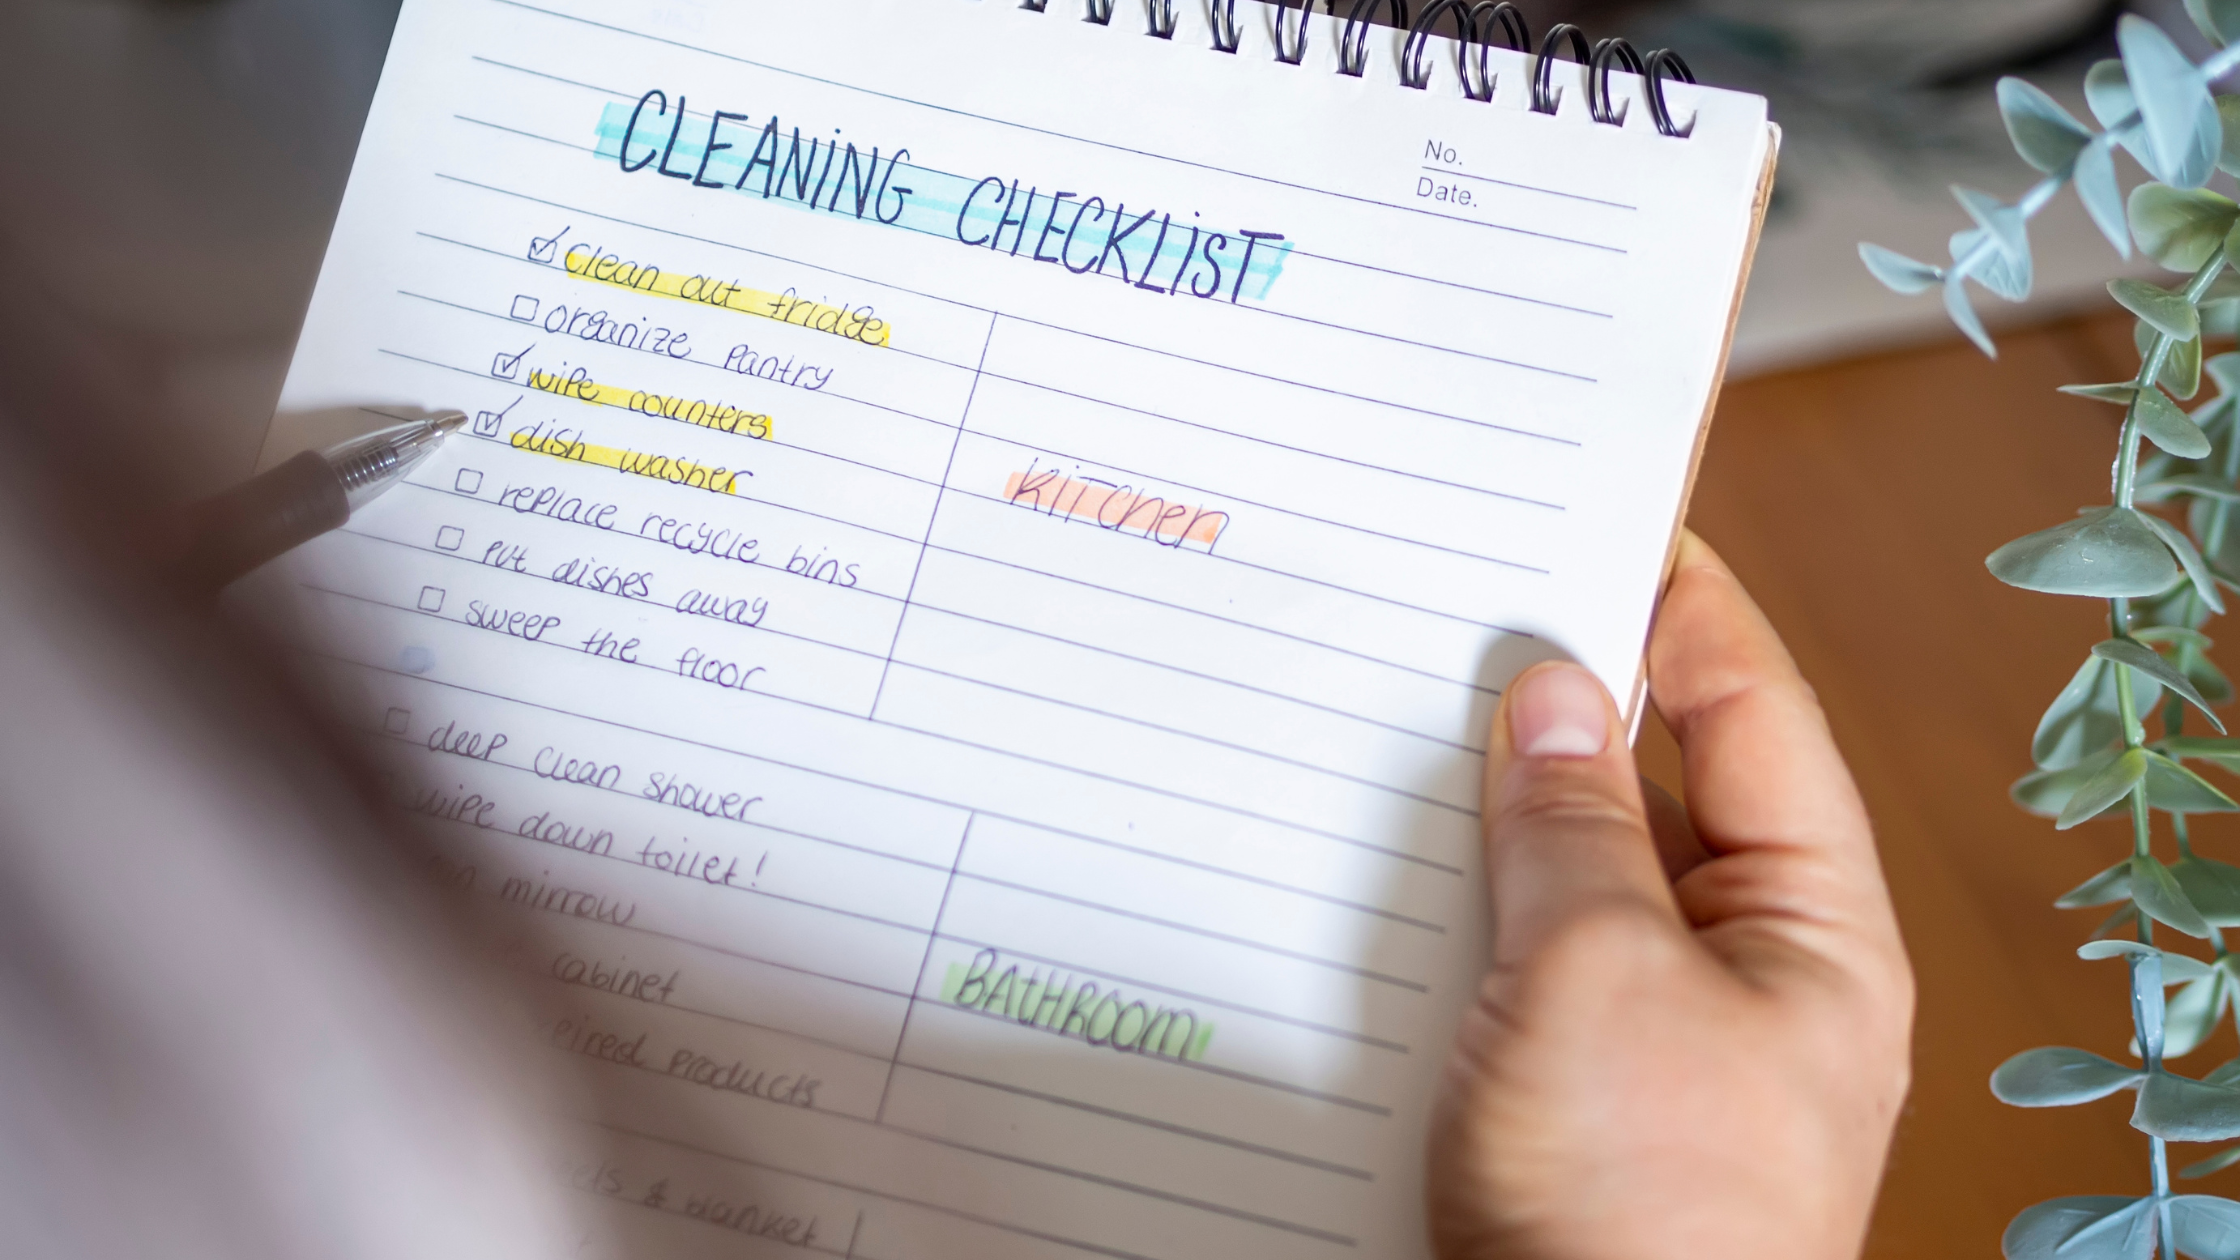 No.
Date.
CLEANiNG CHECKLiST
clean out fridge
organize pantry
wipe counters
dish washer
replace recycle bins
put dishes away
sweep the floor
KiTchen
deep clean shower
wipe down toilet!
mirrow
cabinet
products
BAtHRoom
& blanket